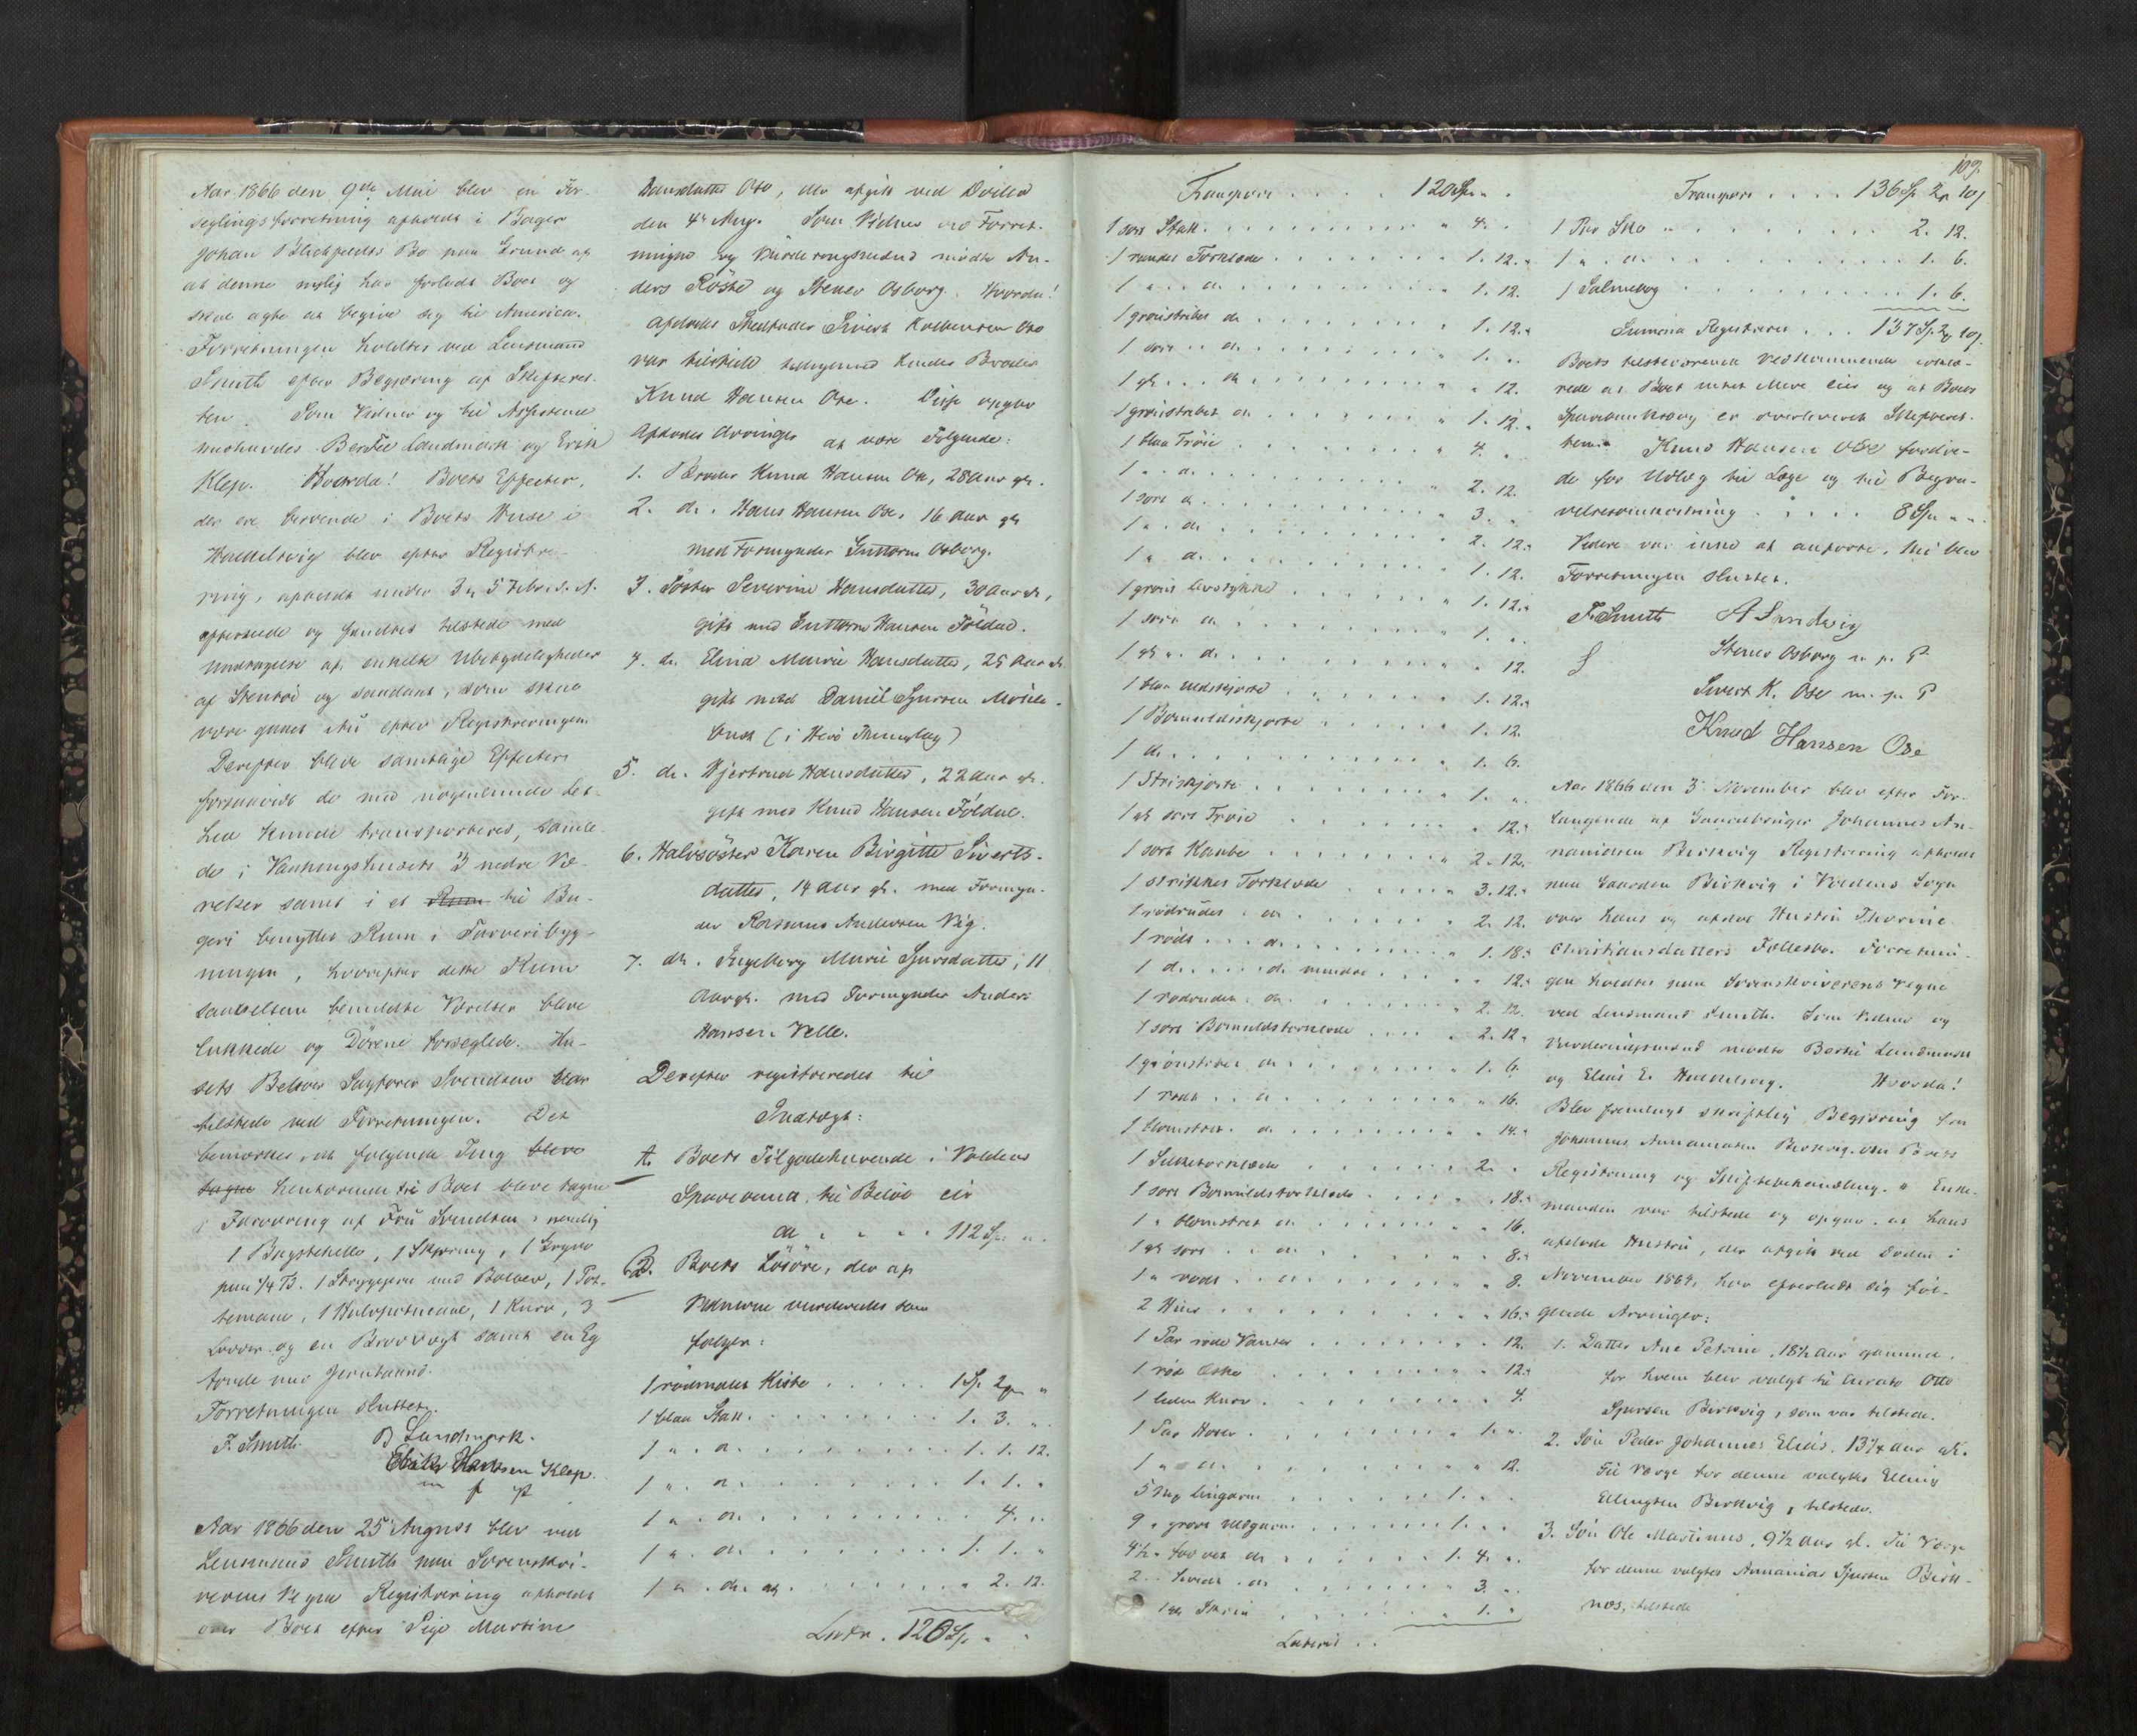 Aar 1866 den 9de Mai blev en For-
seglingsforretning afholdt i Bager
Johan Blichfeldts Bo paa Grund af
at denne nylig har forladt Boet og
skal agte at begive sig til America.
Forretningen holdtes ved Lensmand
Smith efter Begjæring af Skifteret-
ten. Som Vidner og til Assistence
medhavdes Bertil Landmark og Erik
Klep. Hvorda! Boets Effecter,
der ere beroende i Boets Huse i
Haedelsvig blev efter Registre-
ring, afholdt under 3 5 Febr. d. A.
efterseede og fandtes tilstede med
Undtagelse af enkelte Ubetydeligheder
af Stentøi og saadant, som skal
være gaaet itu efter Registreringen.
Derefter bleve samtlige Effecter
forsaavidt de med nogenlunde Let-
hed kunde transporteres, samle-
de i Vaaningshusets 3 nedre Væ-
relser samt i et Rum til Ba-
geri benyttet Rum i Farveribyg-
ningen, hvorefter dette Rum
saavelsom bemeldte Værelser bleve
lukkede og Dørene forseglede. Hu-
sets Beboer Sagfører Svendsen var
tilstede ved Forretningen. Det
bemærkes, at følgende Ting bleve
tagne henhørende til Boet bleve tagne
i Forvaring af Fru Svendsen, nemlig
1 Bagstehelle, 1 , 1 Gryde
paa 1/4 T. 1 Strygejern med Bolter, 1 Pot-
temaal, 1 Halvpottemaal, 1 Kurv, 3
Lodder og en Brevvægt samt en Eg
Tønde med Jernbaand.
Forretningen sluttet.
F. Smith. B Landmark.
Erik Hansen Klep.
m f P
Aar 1866 den 25 August blev ved
Lensmand Smith paa Sorenskri-
verens Vegne Registrering afholdt
over Boet efter Pige Martine
Hansdatter Ose, der afgik ved Døden
den 4 Aug. Som Vidner ved Forret-
ningen og Vurderingsmænd mødte An-
ders Røste og Stener Osborg. Hvorda!
Afdødes Stedfader Sivert Kolbensen Ose
var tilstede tilligemed hendes Broder
Knud Hansen Ose. Disse opgav
Afdødes Arvinger at være Følgende:
1. Broder Knud Hansen Ose, 28 Aar gl.
2. do. Hans Hansen Ose, 16 Aar gl.
med Formynder Guttorm Osborg.
3. Søster Severine Hansdatter, 30 Aar gl,
gift med Guttorm Hansen Føldal.
4. do. Elina Marie Hansdatter, 25 Aar gl.
gift med Daniel Sjursen
(i Herø Thinglag)
5. do. Hjertrud Hansdatter, 22 Aar gl.
gift med Knud Hansen Føldal.
6. Halvsøster Karen Birgitte Siverts-
datter, 14 Aar gl. med Formyn-
der Rasmus Andersen Vig.
7. do. Ingeborg Marie Sjursdatter, 11
Aar gl. med Formynder Anders
Hansen Velle.
Derefter registreredes til
Indtægt:
A. Boets Tilgodehavende i Voldens
Sparebank, til Beløb cir
ca . . . . 112 Sp. "
B. Boets Løsøre, der af
Vidnerne vurderedes som
følger:
1 rødmalet Kiste . . . . 1 Sp. 2 "
1 blaa Stak . . . . 1. 3. "
1 " . do. . . . . 1. 1. 12.
1 " . do. . . . . 1. 1. "
1 " . do. . . . . 4. "
1 " . do. . . . . 1. 1. "
1 " . do. gl. . . . . " 2. 12.
Latr. 120 Sp. " "
109.
Transport . . . . 120 Sp " "
1 sort Stak . . . . " 4. "
1 rundet Forklæde . . . . 1. 12. "
1 " . do. . . . . 1. 12.
1 grønstribet do . . . . 1. 12. "
1 sort " do. . . . . 1. "
1 gl. . . do . . . . " 12.
1 grønstribet do . . . . 1. 12.
1 blaa Trøie . . . . 4. "
1 " . do. . . . . 2. 12.
1 sort do. . . . . 3. "
1 " . do. . . . . 2. 12.
1 " do. . . . . 1. 12.
1 grønt Livstykke . . . . 1. 12.
1 sort do . . . . 1. "
1 gl. " . do. . . . . 12.
1 blaa Uldskjorte . . . . 1. 12.
1 Bomuldskjorte . . . . 1. 12.
1 do. . . . . 1. 6.
1 Striskjorte . . . . 1. "
1 gl. sort Trøie . . . . " 12.
1 sort Kaabe . . . . 2. 12.
1 strikket Tørklæde . . . . 3. 12.
1 rødrudet do . . . . 2. 12.
1 rødt . . do. . . . . 1. 18.
1 do. . . . do. mindre . . . . " 12.
1 rødrudet do. . . . . 2. 12.
1 sort Bomuldstørklæde . . . . 2. 12.
1 grønstribet do . . . . 1. 6.
1 rødt . . do . . . . " 16.
1 blomstret do . . . . " 14.
1 Silketørklæde . . . . 2. "
1 sort Bomuldstørklæde . . . . " 18.
1 " blomstret do . . . . " 16.
1 gl. sort . do . . . . " 8.
1 " rødt . . do . . . . " 8.
2 Huer . . . . " 16.
1 Par røde Vanter . . . . 12.
1 rød Æske . . . . " 12.
1 liden Kurv . . . . 4.
1 Par Hoser . . . . 1. "
1 " do. . . . . " 12.
5 Mrk lingarn . . . . 1. " "
9 " groft uldgarn . . . . 1. "
4½ " farvet do . . . . 1. 4. "
2 " hvidt . do . . . . 3. "
1 gl. Skrin . . . . 1. "
Lateris . .
Transport . . . . 136 Sp. 2 10
1 Par Sko . . . . 2. 12.
1 " . do. . . . . 1. 6.
1 Salmebog . . . . 1. 6.
Summa Registreret . . . 137 Sp. 2 10
Boets tilstedeværende Vedkommende erklæ-
rede at Boet intet Mere eier og at Boets
Sparebanksbog er overleveret Skifteret-
ten. Knud Hansen Ose fordre-
de for Udlæg til Læge og til Begra-
velsesomkostning . . . . 8 Sp. " "
Videre var ikke at anføre. Thi blev
Forretningen sluttet.
F. Smith A Sandvig
Stener Osborg m. p. P.
Sivert K. Ose m. p. P
Knud Hansen Ose
Aar 1866 den 3. November blev efter For-
langende af Gaardbruger Johannes An-
naniasen Birkvig Registrering afholdt
paa Gaarden Birkvig i Voldens Sogn
over hans og afdøde Hustru Thorine
Christiansdatters Fællesbo. Forretnin-
gen holdtes paa Sorenskriverens Vegne
ved Lensmand Smith. Som Vidner og
Vurderingsmænd mødte Bertil Landmark
og Elias E. Haedelsvig. Hvorda!
Blev fremlagt skriftlig Begjæring fra
Johannes Annaniasen Birkvig om Boets
Registrering og Skiftebehandling. " Enke-
manden var tilstede og opgav, at hans
afdøde Hustru, der afgik ved Døden i
November 1864, har efterladt sig føl-
gende Arvinger:
1. Datter Ane Petrine, 18½ Aar gammel,
for hvem blev valgt til Curator Otto
Sjursen Birkvig, som var tilstede.
2. Søn Peder Johannes Elias, 13¼ Aar gl.
Til Værge for denne valgtes Elling
Ellingsen Birkvig, tilstede.
3. Søn Ole Martinus, 9½ Aar gl. Til Værge
for denne valgtes Annanias Sjursen Birk-
næs, tilstede